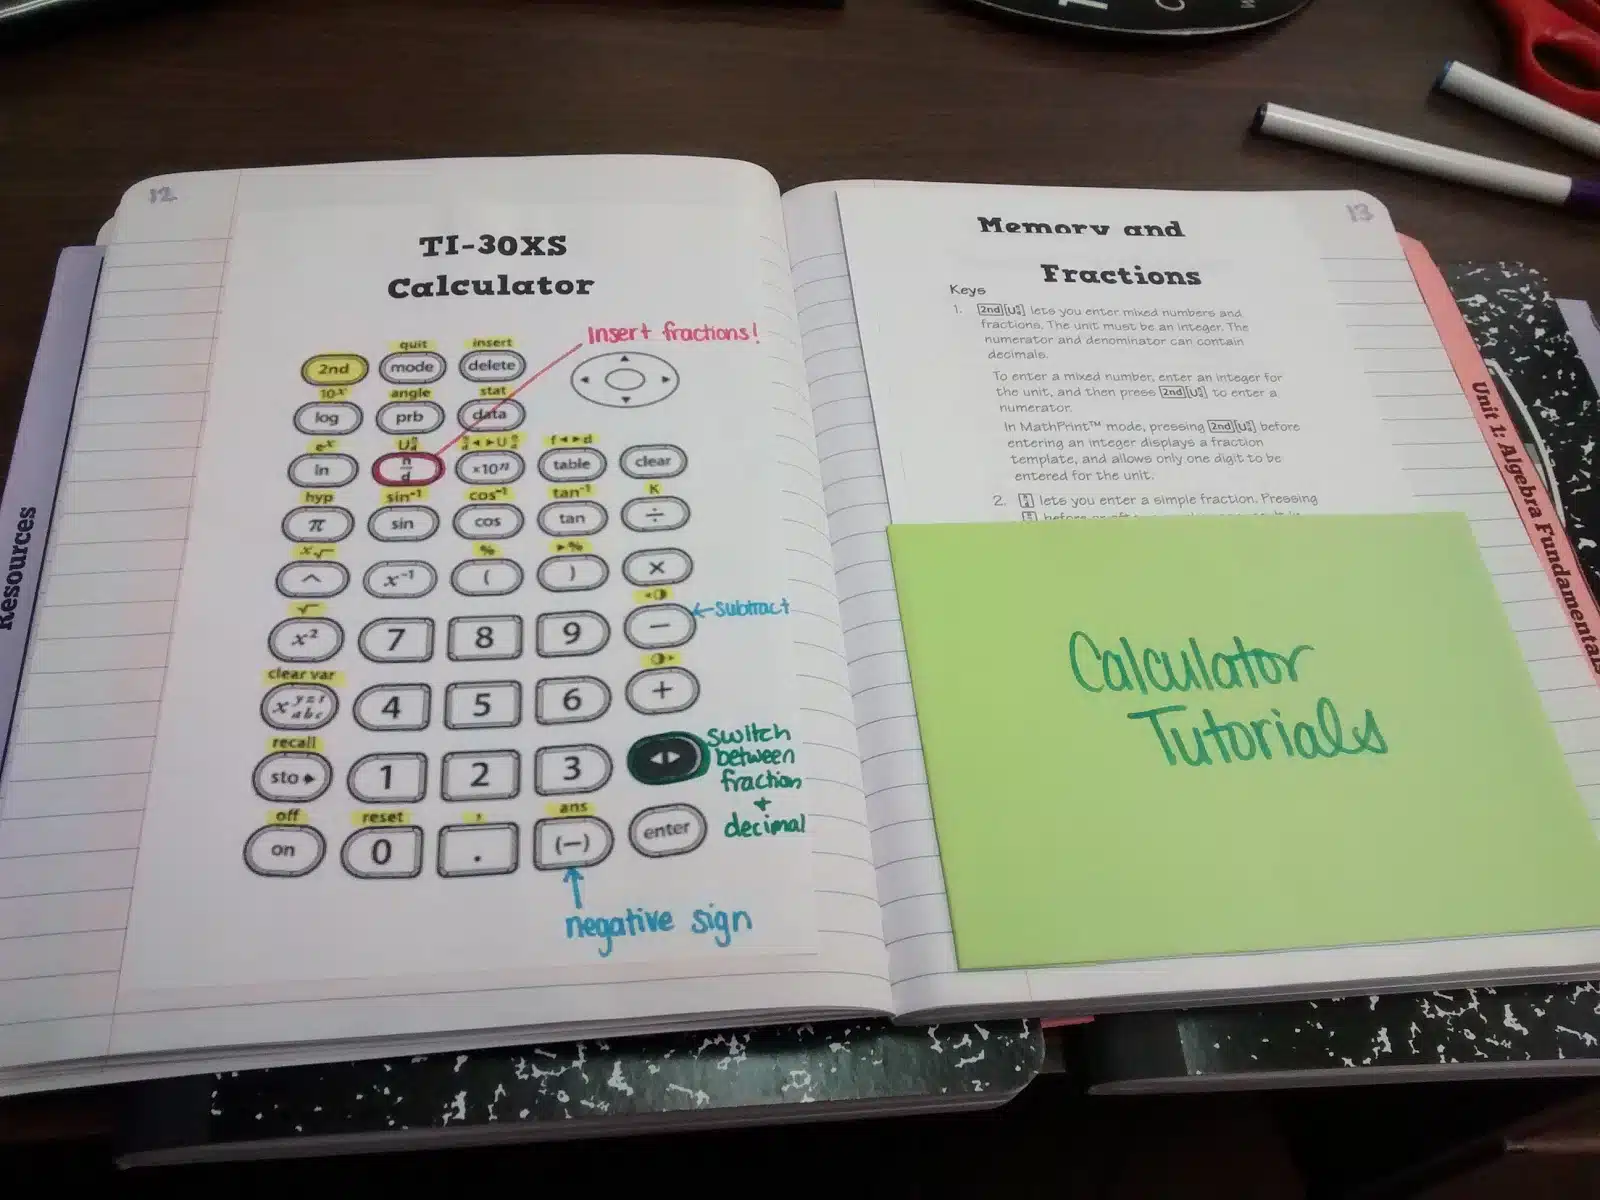 12
TI-30XS
Calculator
Insert fractions!
quit insert
2nd mode delete
10ˣ angle stat
log prb data
eˣ U n/d n/d ◄►U n/d f◄►d
ln n/d ×10ⁿ table clear
hyp sin⁻¹ cos⁻¹ tan⁻¹ K
π sin cos tan ÷
ˣ√ % ►%
^ x⁻¹ ( ) ×
√
x² 7 8 9 − ←subtract
clear var
x yzt abc 4 5 6 +
recall
sto► 1 2 3 ◄►
switch
between
fraction
+
decimal
off reset , ans
on 0 . (—) enter
negative sign
Resources
13
Memory and
Fractions
Keys
1. 2nd [U n/d] lets you enter mixed numbers and
fractions. The unit must be an integer. The
numerator and denominator can contain
decimals.
To enter a mixed number, enter an integer for
the unit, and then press 2nd [U n/d] to enter a
numerator.
In MathPrint™ mode, pressing 2nd [U n/d] before
entering an integer displays a fraction
template, and allows only one digit to be
entered for the unit.
2. n/d lets you enter a simple fraction. Pressing
Calculator
Tutorials
Unit 1: Algebra Fundamentals